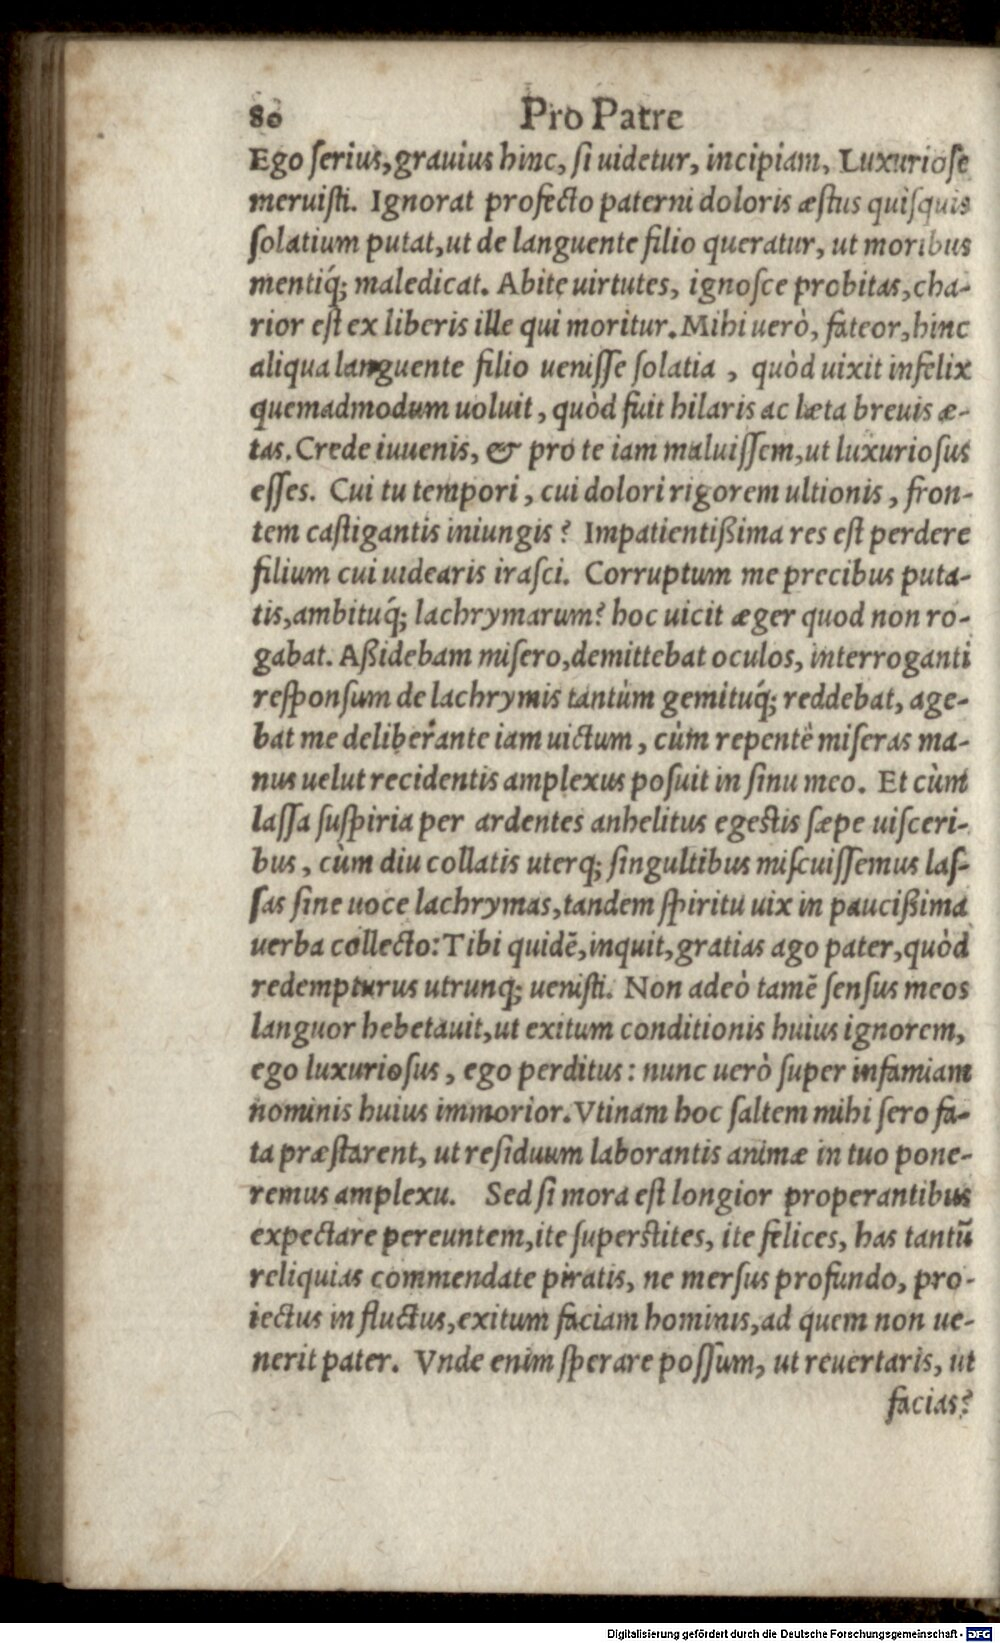 80 Pro Patre
Ego ſerius,grauius hinc, ſi uidetur, incipiam, Luxurioſe
meruiſti. Ignorat profecto paterni doloris æſtus quiſquis
ſolatium putat,ut de languente filio queratur, ut moribus
mentiq́; maledicat. Abite uirtutes, ignoſce probitas,cha-
rior eſt ex liberis ille qui moritur. Mihi uerò, fateor,hinc
aliqua languente filio ueniſſe ſolatia , quòd uixit infelix
quemadmodum uoluit, quòd fuit hilaris ac læta breuis æ-
tas. Crede iuuenis, & pro te iam maluiſſem,ut luxurioſus
eſſes. Cui tu tempori, cui dolori rigorem ultionis, fron-
tem caſtigantis iniungis? Impatientißima res eſt perdere
filium cui uidearis iraſci. Corruptum me precibus puta-
tis,ambituq́; lachrymarum? hoc uicit æger quod non ro-
gabat. Aßidebam miſero,demittebat oculos, interroganti
reſponſum de lachrymis tantùm gemituq́; reddebat, age-
bat me deliberante iam uictum, cùm repentè miſeras ma-
nus uelut recidentis amplexus poſuit in ſinu meo. Et cùm
laſſa ſuſpiria per ardentes anhelitus egeſtis ſæpe uiſceri-
bus, cùm diu collatis uterq; ſingultibus miſcuiſſemus laſ-
ſas ſine uoce lachrymas,tandem ſpiritu uix in paucißima
uerba collecto: Tibi quidē,inquit,gratias ago pater,quòd
redempturus utrunq; ueniſti. Non adeò tamē ſenſus meos
languor hebetauit,ut exitum conditionis huius ignorem,
ego luxurioſus, ego perditus: nunc uerò ſuper infamiam
nominis huius immorior. Vtinam hoc ſaltem mihi ſero fa-
ta præſtarent, ut reſiduum laborantis animæ in tuo pone-
remus amplexu. Sed ſi mora eſt longior properantibus
expectare pereuntem,ite ſuperſtites, ite felices, has tantū
reliquias commendate piratis, ne merſus profundo, pro-
iectus in fluctus,exitum faciam hominis,ad quem non ue-
nerit pater. Vnde enim ſperare poſſum, ut reuertaris, ut
facias?
Digitalisierung gefördert durch die Deutsche Forschungsgemeinschaft - DFG